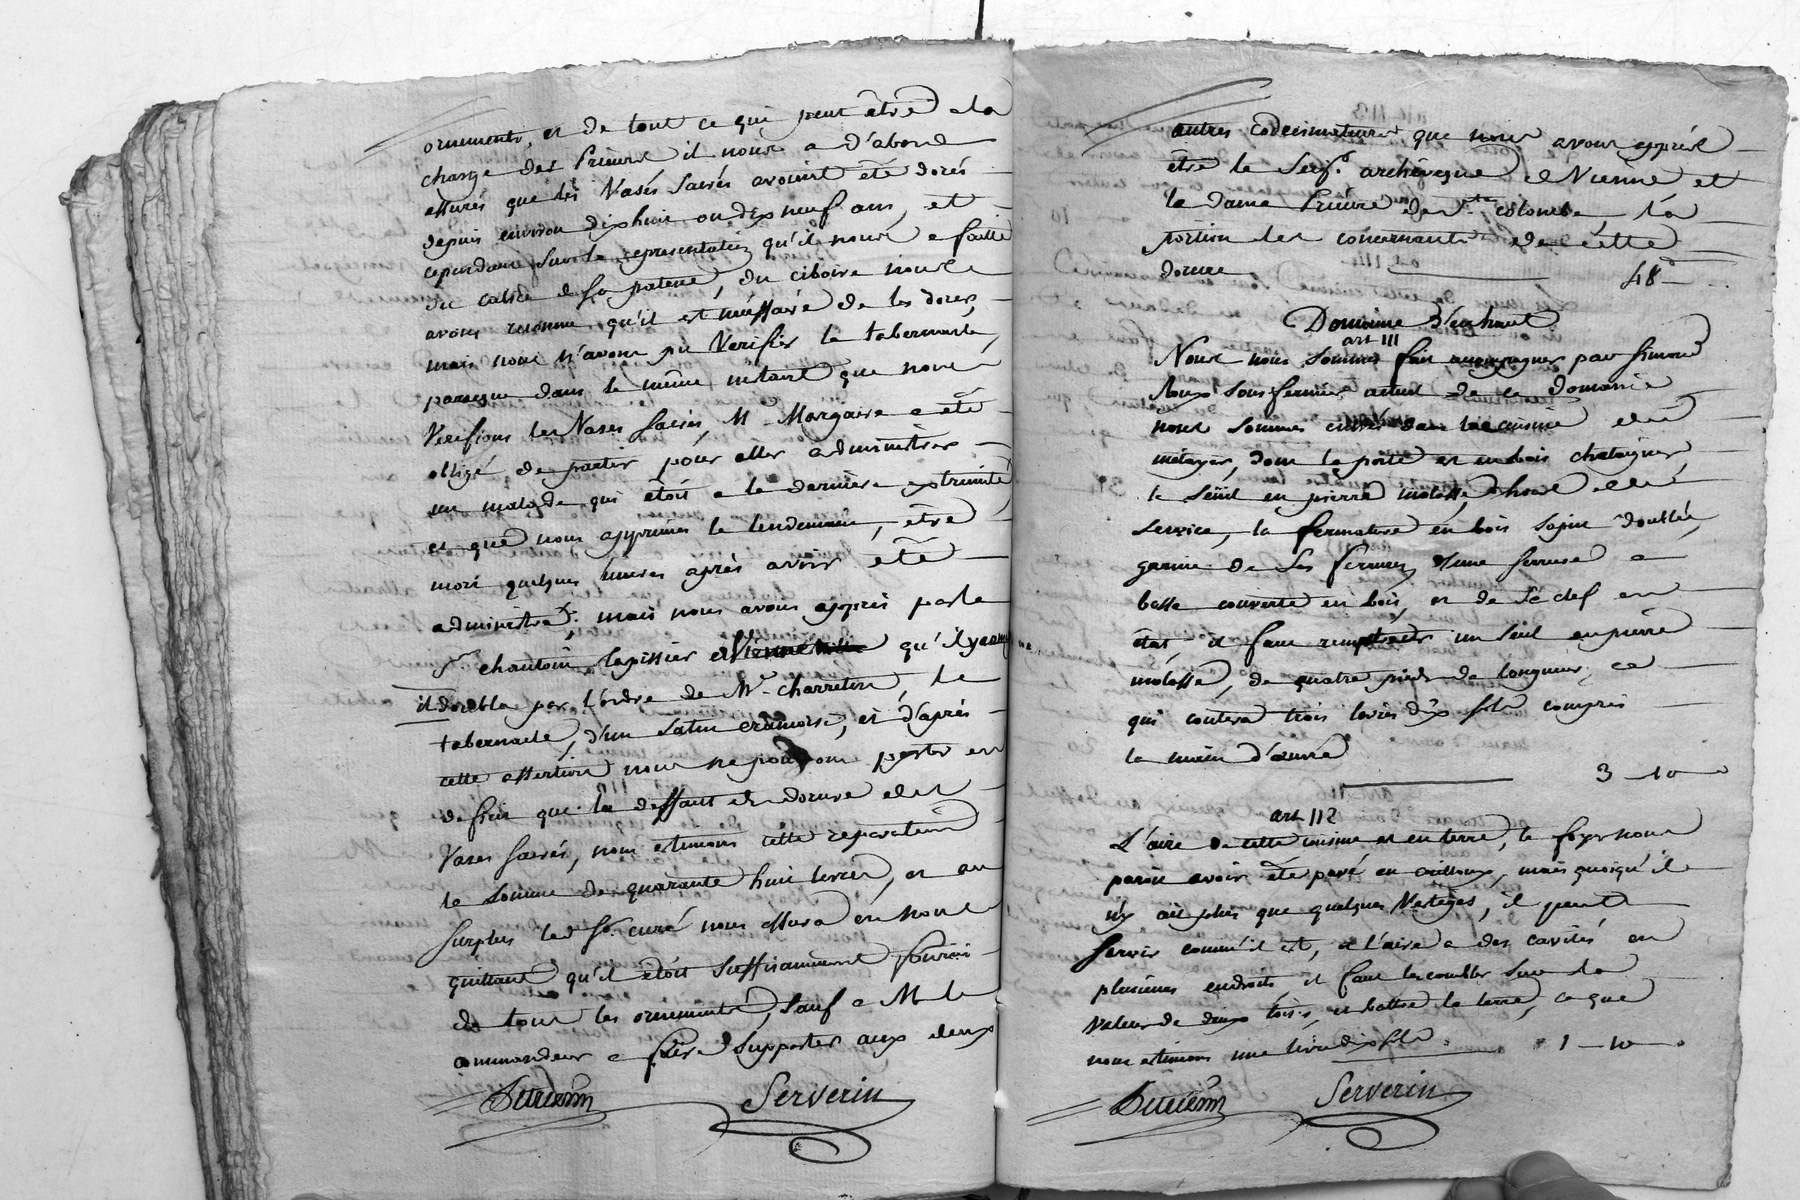 ornements, et de tout ce qui peut être a la
charge des Prieurs il nous a d'abord
assurés que les Vases Sacrés avoient été dorés
depuis environ dix huit ou dix neuf ans, et
cependant sur la representation qu'il nous a faitte
du calice de sa patene, du ciboire nous
avons reconnu qu'il est necessaire de les dorer,
mais nous n'avons pu Verifier le tabernacle,
parceque dans le même instant que nous
Verifions les Vases Sacrés, Mr Margaire a été
obligé de partir pour aller administrer
un malade qui étoit a la derniere extremité
et que nous apprimes le lendemain, être
mort quelques heures après avoir été
administré; mais nous avons appris par le
Sr chautoin, tapissier de Vienne qu'il y a
il doubla par l'ordre de Mr charreton, le
tabernacle, d'un Satin cramoisi, et d'après
cette assertion nous ne pouvons porter en
deficit que le deffaut de dorure des
Vases Sacrés, nous estimons cette reparation
la Somme de quarante huit livres, et au
Surplus led. Sr. curé nous assura en nous
quittant qu'il étoit Suffisamment fourni
de tous les ornements, Sauf a M le
commandeur a faire Supporter aux deux
Serverin
autres codecimateurs que nous avons appris
être le Seigr. archevêque de Vienne et
la dame Prieure de Ste colombe, la
portion les concernants de cette
dorure 48
Domaine
art 111
Nous nous Sommes fait accompagner par Simon
Roux Sous fermier actuel de ce domaine
nous Sommes entrés dans la cuisine du
métayer, dont la porte est en bois chataigner,
le Seüil en pierre molasse hors de
Service, la fermature en bois Sapin doublée,
garnie de Ses ferrures, d'une Serrure a
bosse couverte en bois, et de Sa clef en
état, il faut remplacer un Seuil en pierre
molasse, de quatre pieds de longueur, ce
qui coutera trois livres dix Sols compris
la main d'œuvre
3 - 10
art 112
L'aire de cette cuisine est en terre, le foyer nous
paroit avoir été pavé en cailloux, mais quoiqu'il
n'y ait plus que quelques Vestiges, il peut
Servir comme il est, a l'aire a des cavités en
plusieurs endroits il faut les combler Sur la
Valeur de deux toises, et battre la terre, ce que
nous estimons une livre dix Sols 1 - 10
Serverin